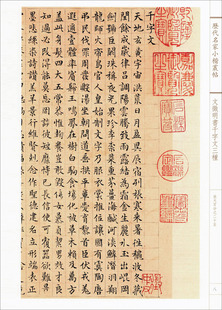 歷代名家小楷叢帖
文徵明書千字文三種
千字文
天地玄黃宇宙洪荒日月盈昃辰宿列張寒來暑往秋收冬藏
閏餘成歲律呂調陽雲騰致雨露結為霜金生麗水玉出崐岡
劍號巨闕珠稱夜光菓珍李柰菜重芥薑海鹹河淡鱗潛羽翔
龍師火帝鳥官人皇始制文字乃服衣裳推位讓國有虞陶唐
弔民伐罪周發殷湯坐朝問道垂拱平章愛育黎首臣伏戎羌
遐邇壹體率賓歸王鳴鳳在樹白駒食場化被草木賴及萬方
蓋此身髮四大五常恭惟鞠養豈敢毀傷女慕貞絜男效才良
知過必改得能莫忘罔談彼短靡恃己長信使可覆器欲難量
墨悲絲染詩讚羔羊景行維賢剋念作聖德建名立形端表正